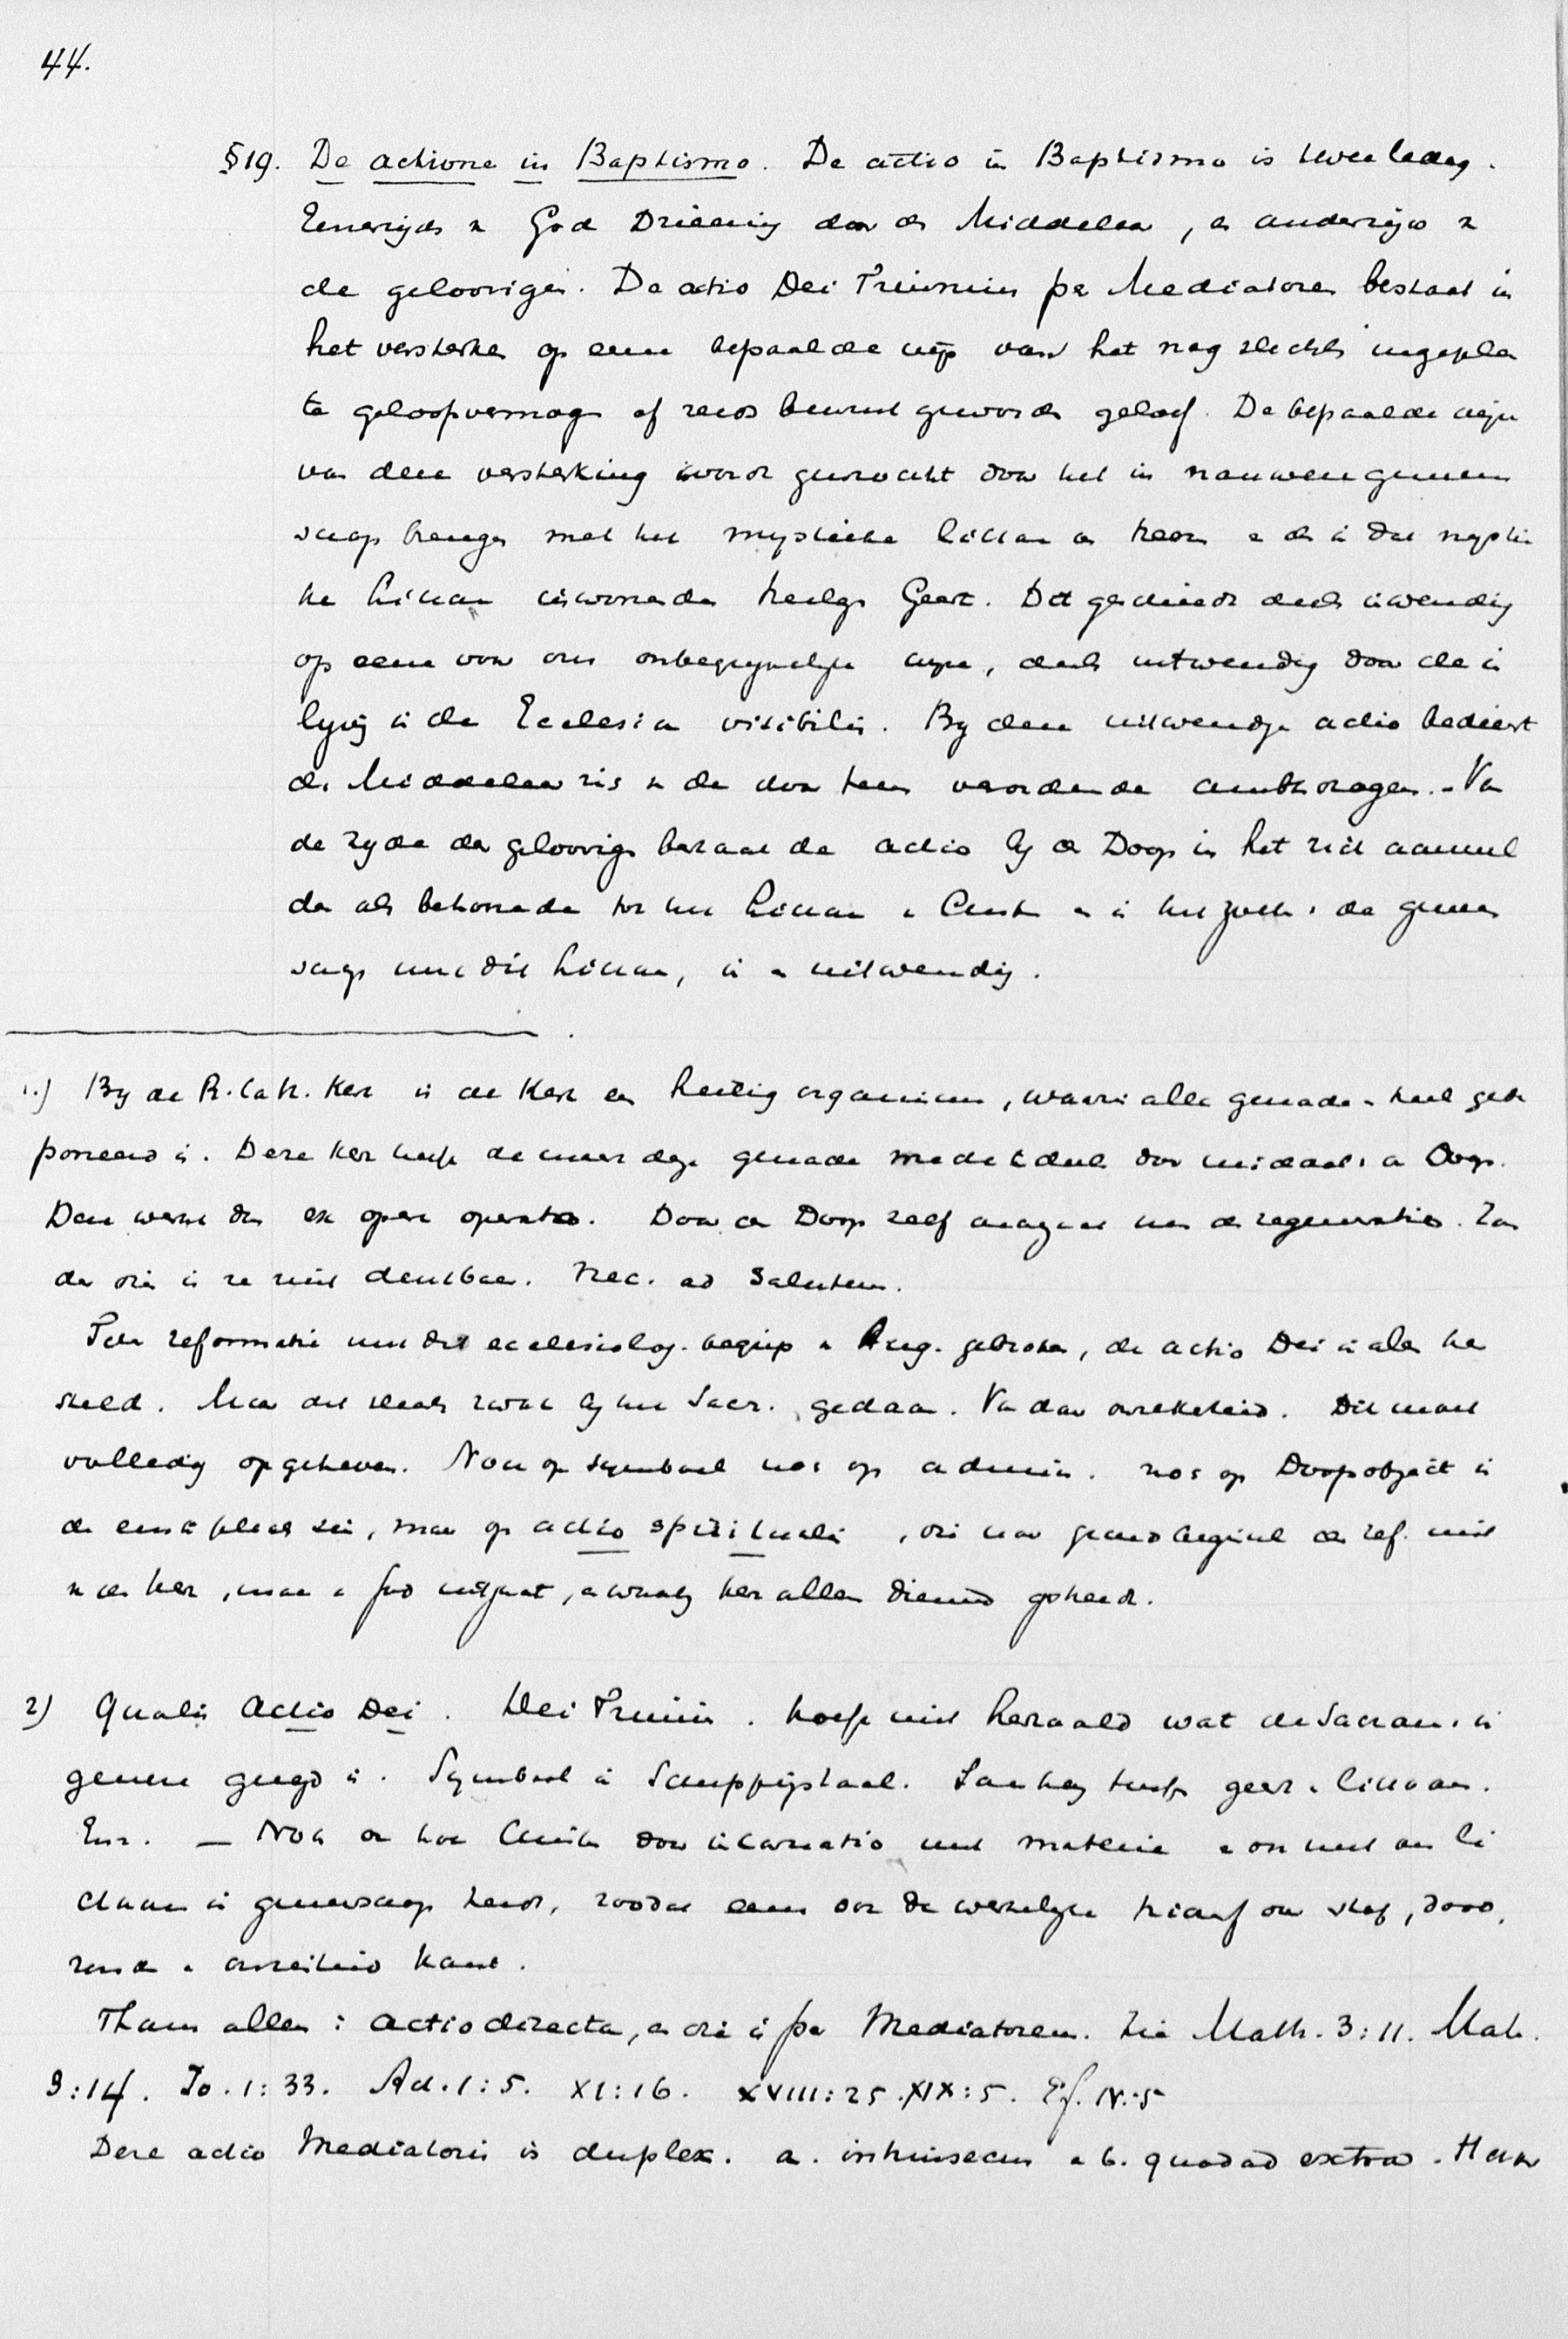 44.
§19. De actione in Baptismo. De actio in Baptismo is tweeledig.
Eenerzijds v God Drieenig door de Middelaar, en anderzijds v
de geloovigen. De actio Dei Triunius per Mediatorem bestaat in
het versterken op eene bepaalde wijs van het nog slechts ingeplan
te geloofsvermogen of reeds bewust geworden geloof. De bepaalde wijze
van deze versterking wordt gewrocht door het in nauwere gemeen
schap brengen met het mystieke lichaam des Heeren en de in dat mystie
ke lichaam inwonende Heilige Geest. Dit geschiedt deels inwendig
op eene voor ons onbegrijpelijke wijze, deels uitwendig door de in
lijving in de Ecclesia visibilis. Bij deze uitwendige actio bedient
de Middelaar zich v de door hem verordende ambtsdragers. - Van
de zijde der geloovigen bestaat de actio bij de Doop in het zich aanmel
den als behoorende tot het lichaam v Christus en in het zoeken v de gemeen
schap met dit lichaam, in en uitwendig.
1.) Bij de R. Cath. Kerk is de Kerk een heilig organisme, waarin alle genade en heil gede
poneerd is. Deze Kerk heeft de noodige genade mede te deelen door middel v de Doop.
Deze werkt dus ex opere operato. Door de Doop zelf ontvangt men de regeneratie. Zon
der die is ze niet denkbaar. Nec. ad Salutem.
De reformatie met dit ecclesiolog. begrip v Aug. gebroken, de actio Dei in alles her
steld. Maar dit slechts zwak bij het Sacr. gedaan. Van daar onzekerheid. Dit moet
volledig opgeheven. Noch op symbool noch op admin. noch op Doopobject in
de eerste plaats zien, maar op actio spiritualis, die naar grondbeginsel der ref. niet
v de kerk, maar v God uitgaat, en waarbij kerk alleen dienend optreedt.
2) Qualis Actio Dei. Dei Triunius. Hoeft niet herhaald wat de Sacram. in
genere gezegd is. Symbool in Scheppingstaal. Samenhang tusschen geest en lichaam.
Enz. — Noch ook hoe Christus door incarnatio met materie en ons met ons li
chaam in gemeenschap treedt, zoodat eens ook de werkelijke triomf over stof, dood,
zonde en onreinheid komt.
Thans alleen: actio directa, en die is per Mediatorem. Zie Matth. 3:11. Math.
3:14. Jo. 1:33. Act. 1:5. XI:16. XVIII:25. XIX:5. Ef. IV:5
Deze actio Mediatoris is duplex. a. intrinsecus en b. quoad extra. Hier